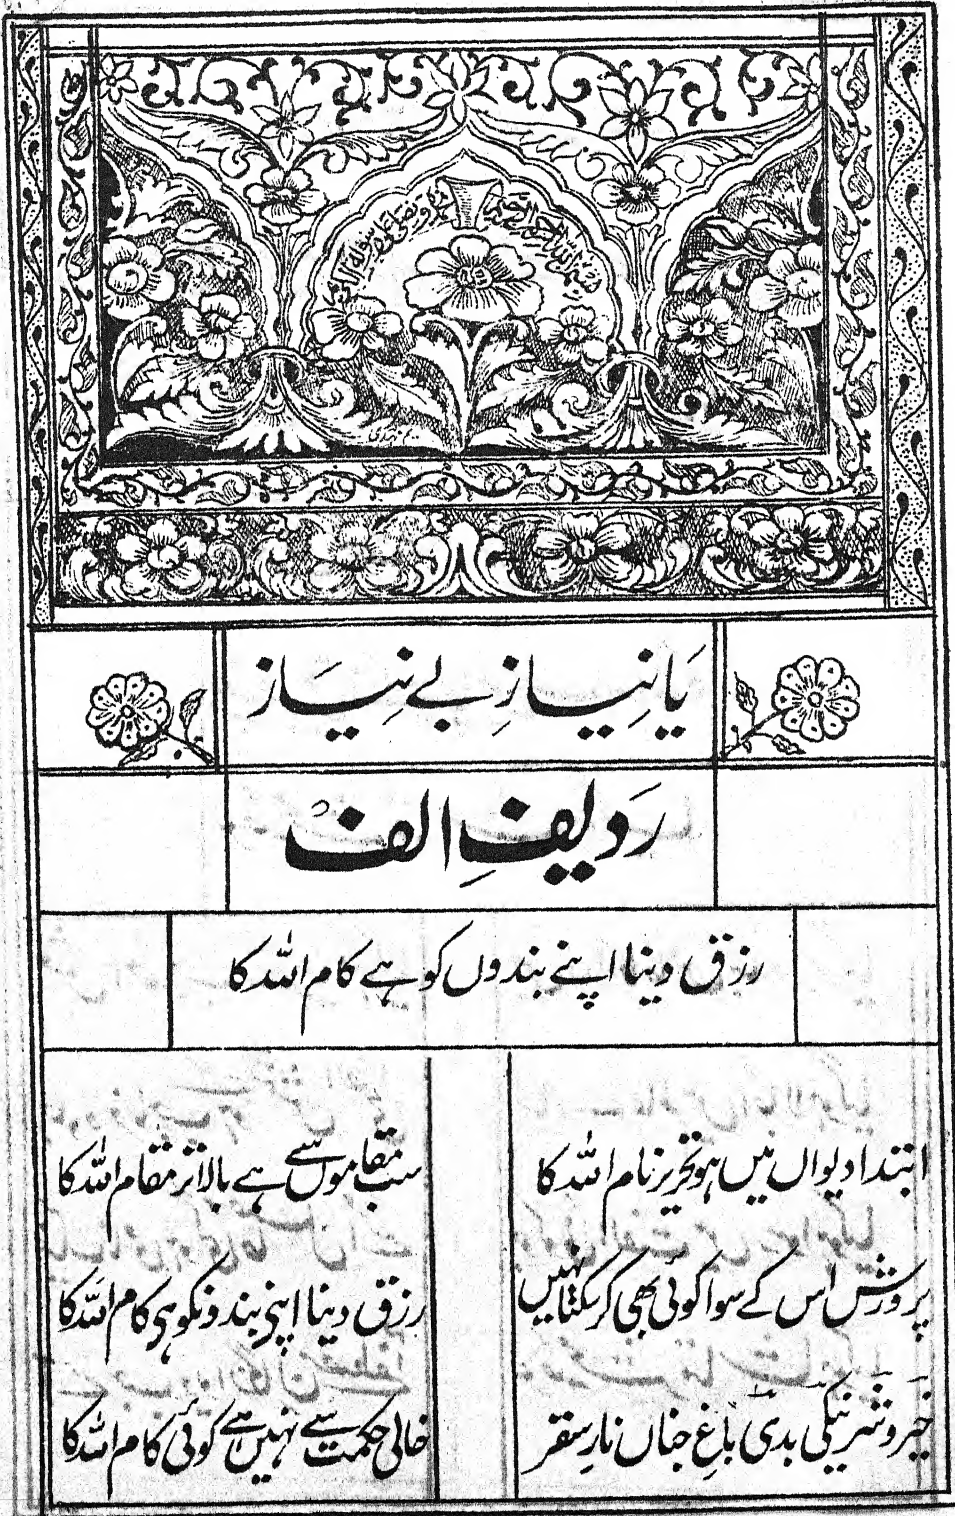 بسم اللہ الرحمن الرحیم
یَا نِیَازِ بے نِیَاز
رَدیفِ الف
رزق دینا اپنے بندوں کو ہے کام اللہ کا
ابتدا دیواں میں ہو تحریر نام اللہ کا سب مقاموں سے ہے بالاتر مقام اللہ کا
پرورش اُس کے سوا کوئی بھی کر سکتا نہیں رزق دینا اپنی بندونکو ہی کام اللہ کا
خیر و شر نیکی بدی باغِ جناں نارِ سقر خالی حکمت سے نہیں ہے کوئی کام اللہ کا